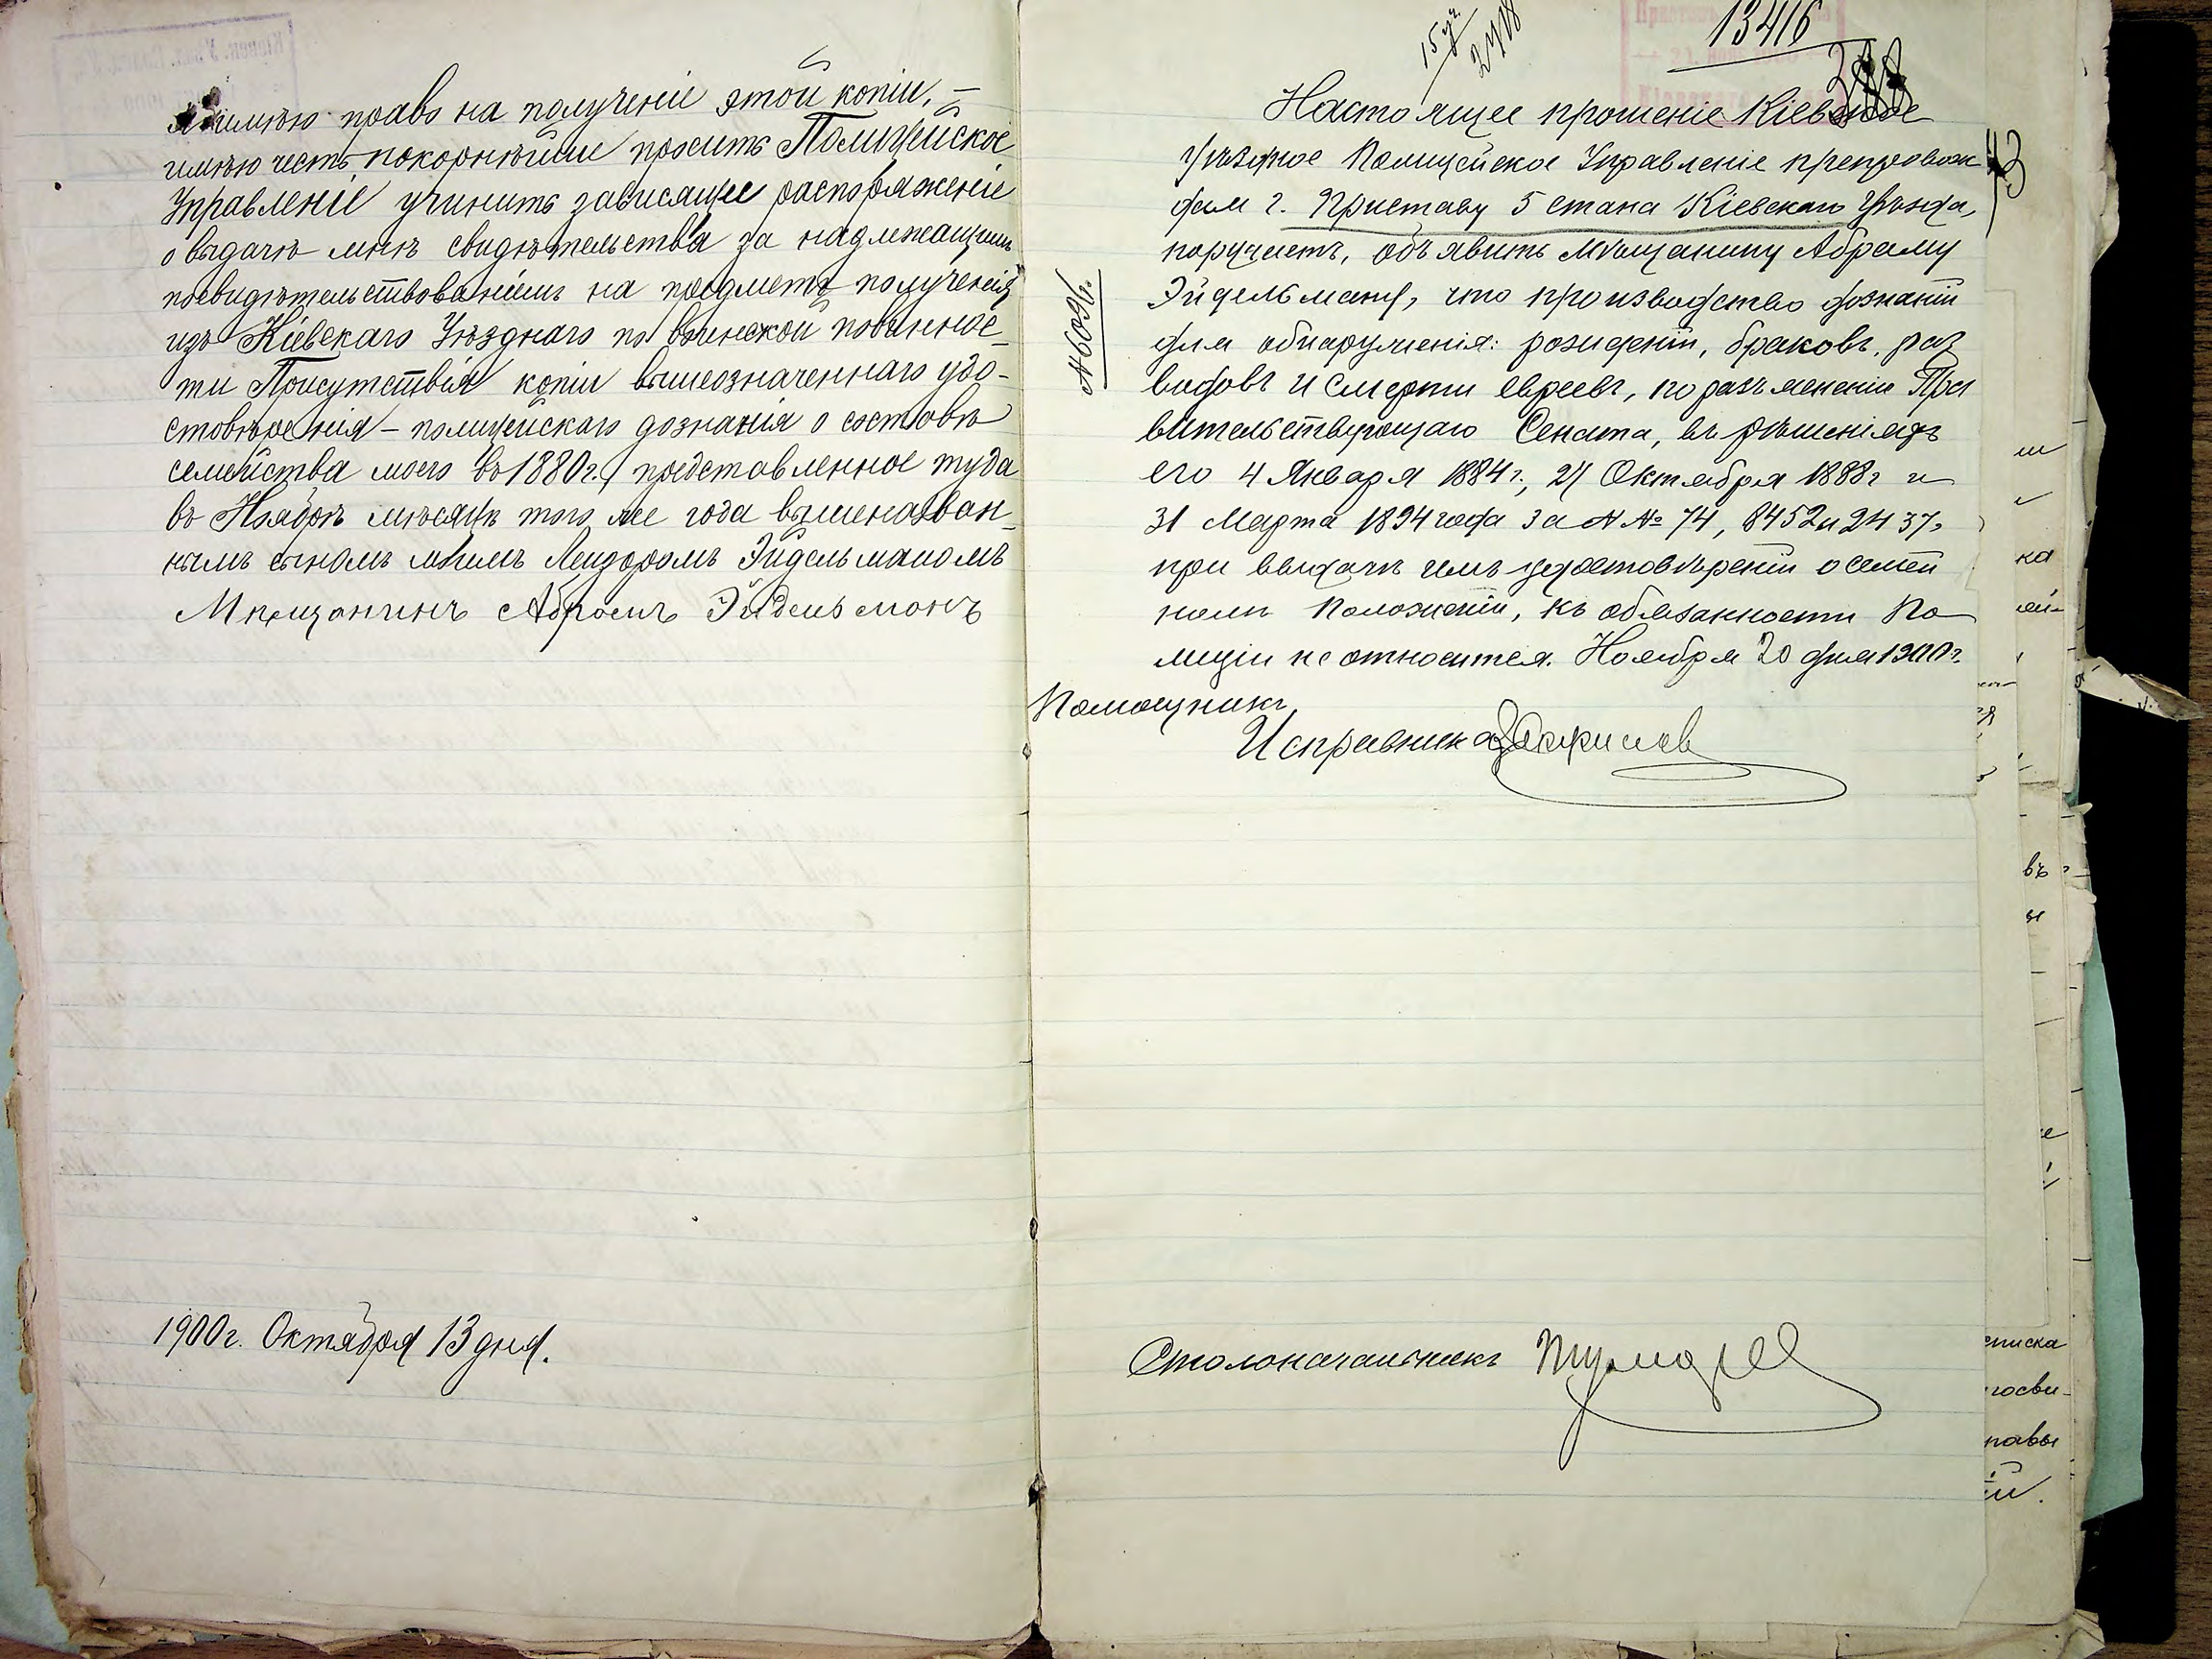 я имѣю право на полученіе этой копіи, —
имѣю честь покорнѣйше просить Полицейское
Управленіе учинить зависящее распоряженіе
о выдачѣ мнѣ свидѣтельства за надлежащимъ
посвидѣтельствованіемъ на предметъ полученія
изъ Кіевскаго Уѣзднаго по воинской повиннос-
ти Присутствія копіи вышеозначеннаго удо-
стовѣренія – полицейскаго дознанія о составѣ
семейства моего въ 1880 г., представленное туда
въ Ноябрѣ мѣсяцѣ того же года вышеназван-
нымъ сыномъ моимъ Эйдельманомъ
Мѣщанинъ Абрамъ Эйдельманъ
1900 г. Октября 13 дня.
15 уч.
13416
Настоящее прошеніе Кіевское
Уѣздное Полицейское Управленіе препровож
дая г. Приставу 5 стана Кіевскаго Уѣзда,
поручаетъ, объявить мѣщанину Абраму
Эйдельману, что производство дознаній
для обнаруженія: рожденій, браковъ, раз
водовъ и смерти евреевъ, по разъясненію Пра
вительствующаго Сената, въ рѣшеніяхъ
его 4 Января 1884 г., 24 Октября 1888 г и
31 Марта 1894 года за №№ 74, 8452 и 2437,
при выдачѣ имъ удостовѣреній о семей
номъ положеніи, къ обязанности По
лиціи не относится. Ноября 20 дня 1900 г.
№ 6096.
Помощникъ
Исправника
Столоначальникъ
13
ка
въ
списка
госви-